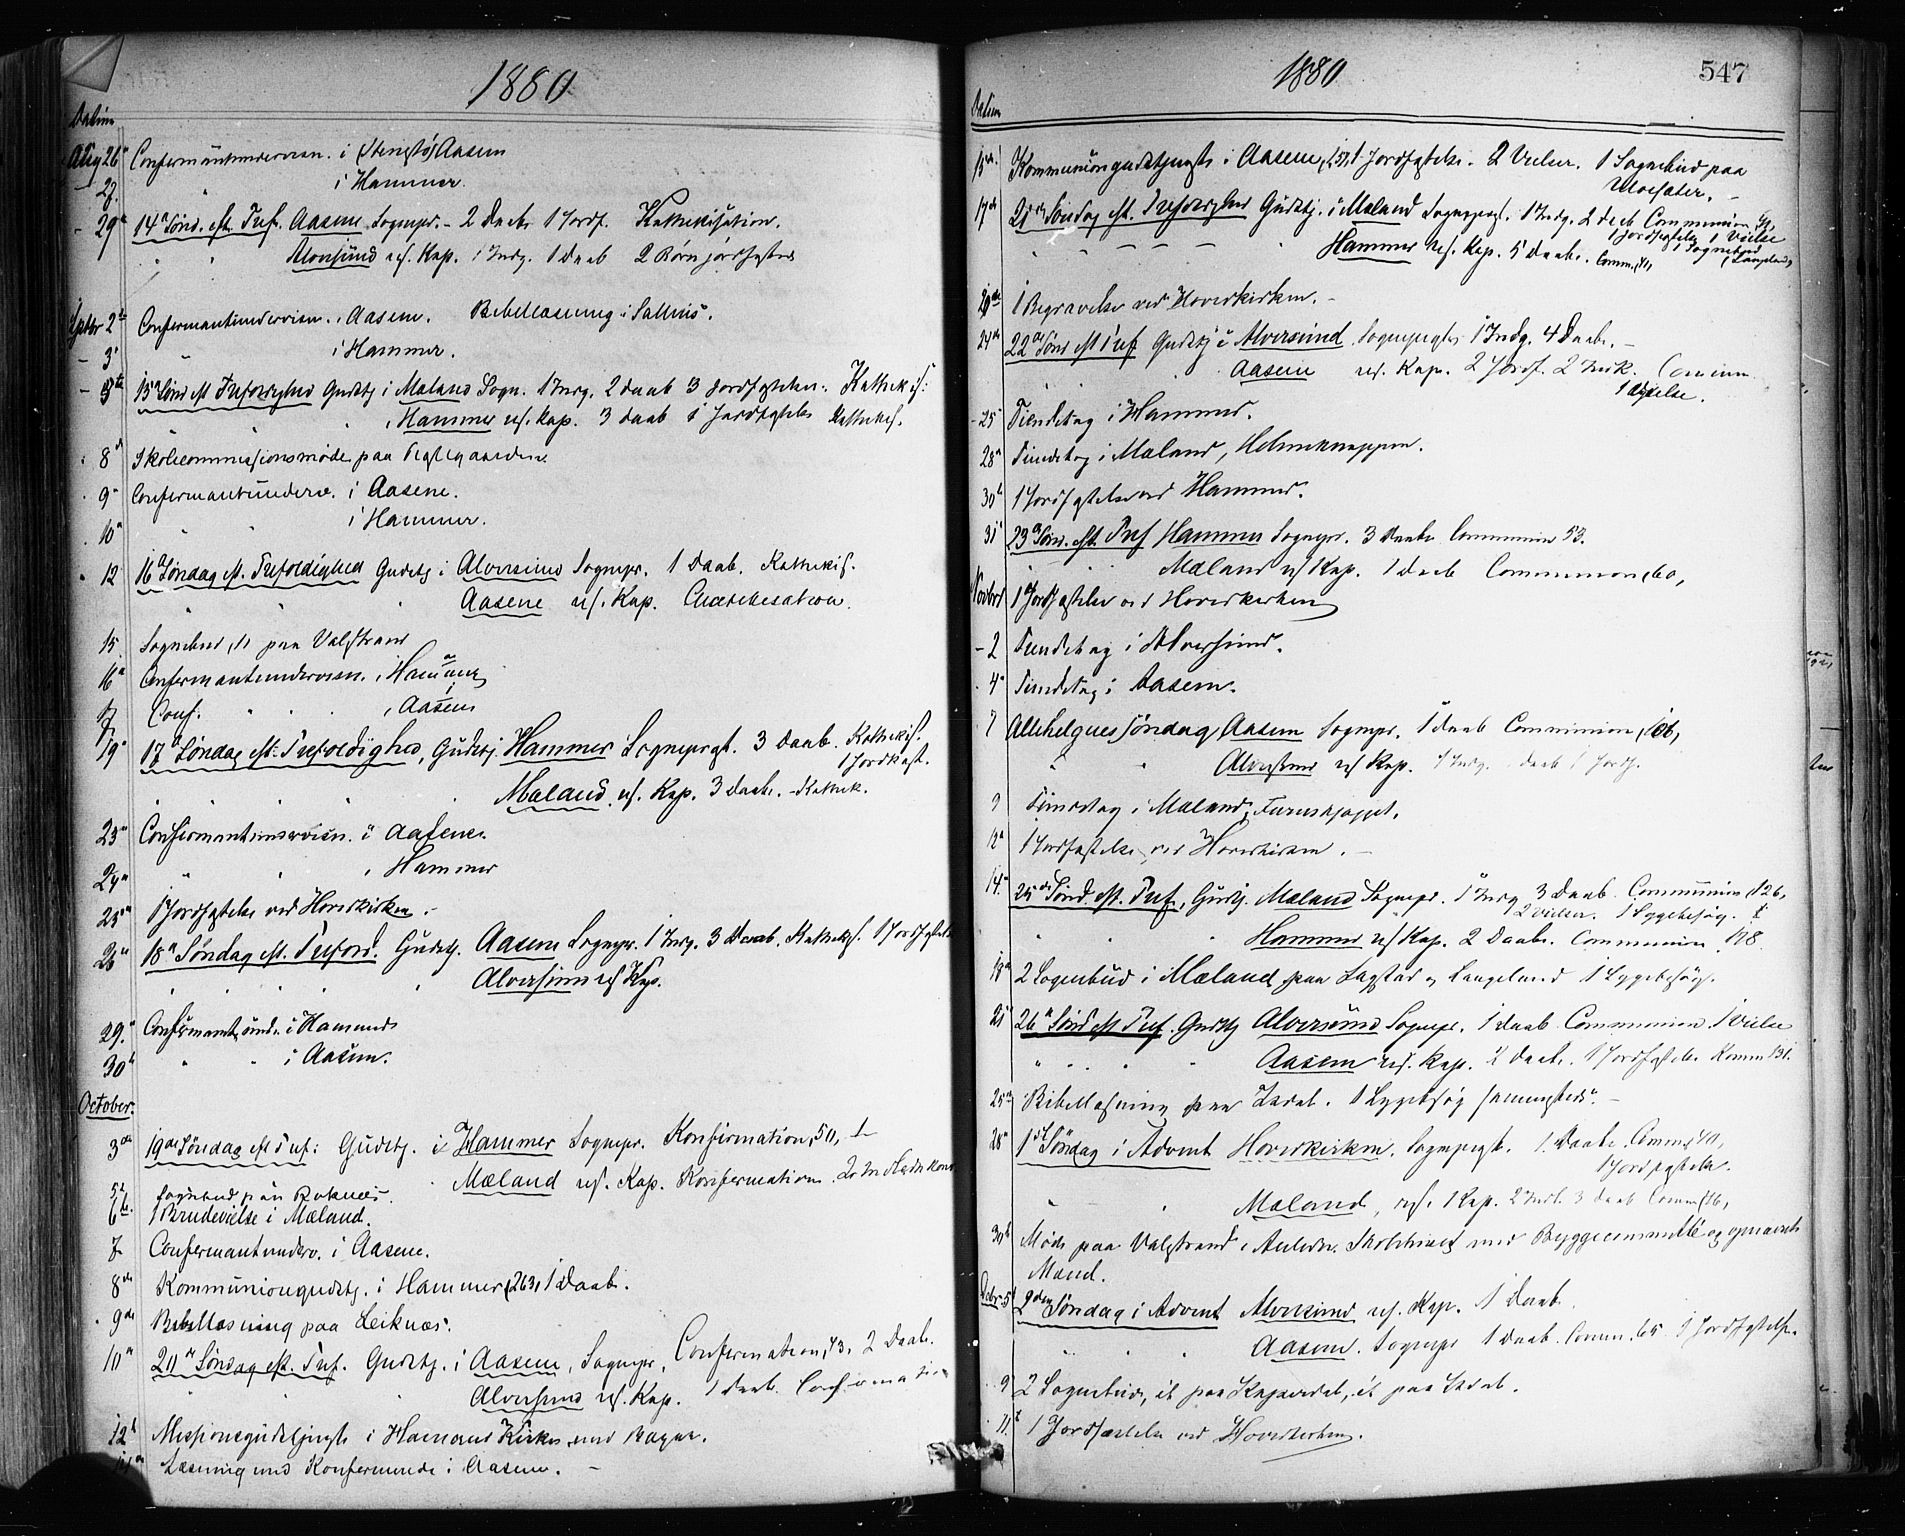 1880
Datum
Aug 26 Confermantundervisn. i Aasene
27. i Hammer.
- 29 14 Sönd. eft. Tref. Aasene Sognepr. - 2 Daab 1 Jordf. Kathekisation.
Alversund ref. Kap. 1 Indg. 1 Daab 2 Börn jordfæstes
Septbr 2 Confermantundervisn. i Aasene. Bibellæsning i
- 3 i Hammer.
- 5 15 Sönd eft Trefoldighed Gudstj i Mæland Sogn. 1 Indg. 2 daab 3 Jordfæstelser. Kathekis:
i Hammer ref. Kap. 3 daab 1 Jordfæstelse Kathekis.
8 Skolecommissionsmöde paa Prestegaarden.
9 Confermantunderv. i Aasene.
10 i Hammer.
12 16 Söndag eft. Trefoldighed Gudstj i Alversund Sognepr. 1 Daab. Kathekis.
Aasene ref. Kap. Chatekesation.
15. Sognebud, 1, paa Valestrand
16 Confermantundervisn. i Hammer
17 Conf. i Aasene
19 17 Söndag eft. Trefoldighed, Gudstj. Hammer Sogneprest. 3 Daab. Kathekis.
1 Jordkast.
Mæland ref. Kap. 3 daab. - Kathek.
23 Confirmantunderviisn. i Aasene.
24 i Hammer
25 1 Jordfæstelse ved Hoverkirken.
26 18 Söndag eft. Trefold. Gudstj. Aasene Sognepr. 1 Indg. 3 Daab. Kathekis. 1 Jordfæstelse
Alversund ref Kap.
29. Confirmantund. i Hammer
30 i Aasene.
October.
3 19de Söndag eft Tref: Gudstj. i Hammer Sognepr. Konfirmation, 50, 1
Mæland ref. Kap. Konfermation.
5 Sognebud paa Boknes.
6 1 Brudevielse i Mæland.
7 Confermantunderv. i Aasene.
8de Kommuniongudstj. i Hammer (263, 1 Daab.
9de Bibellæsning paa Leiknæs.
10 20 Söndag eft. Tref. Gudstj. i Aasene, Sognepr. Confermation, 43, 2 Daab.
Alversund ref. Kap. 1 daab Confirmation
12 Missionsgudstjeneste i Hammer Kirke
Læsning med Konfermerede i Aasene. -
1880 547
Datum
15de Kommuniongudstjeneste i Aasene, (57, 1 Jordfæstelse. 2 Vielser. 1 Sognebud paa
17de 21de Söndag eft. Trefoldighed Gudstj. i Mæland Sogneprest. 1 Indg. 2 daab Communion
1 Jordfæstelse 1 Vielse
Hammer ref. Kap. 5 Daab. Comm. 1 Sognebud
20de 1 Begravelse ved Hoverkirken. -
24de 22 Sönd eft Tref Gudstj i Alversund Sogneprest 1 Indg. 4 Daab. -
Aasene ref. Kap. 2 Jordf. 2 Introd. Commun
1 Vielse.
- 25 Tiendetag i Hammer.
28 Tiendetag i Mæland, Holmeknappen.
30 1 Jordfæstelse ved Hammer.
31 23 Sönd. eft. Tref Hammer Sognepr. 3 Daab Communion 53.
Mæland ref Kap. 1 Daab Communion, 60,
Novbr 1 Jordfæstelse ved Hoverkirken
- 2 Tiendetag i Alversund.
4 Tiendetag i Aasene.
7 Allehelgens söndag Aasene Sognepr. 1 daab Communion, 106,
Alversund ref Kap. 1 Indg. daab 1 Jordf.
9 Tiendetag i Mæland,
12 1 Jordfæstelse ved Hoverkirken. -
14. 25de Sönd. eft. Tref., Gudstj. Mæland Sognepr. 1 Indg 3 Daab. Communion, 126,
2 Vielser. 1 Sygebesög.
Hammer ref Kap. 2 Daab. Communion 118.
18 2 Sognebud i Mæland, paa Sagstad og Langeland 1 Sygebesög.
21 26 Sönd eft Tref. Gudstj Alversund Sognepr. 1 daab Communion 1 Vielse
Aasene ref. Kap. 2 Daab. 1 Jordfæstelse Komm 131.
25 Bibellæsning paa Isdal. 1 Sygebesög sammesteds. -
28 1ste Söndag i Advent Hoverkirken. Sogneprest. 1. Daab. Comm. 40,
1 Jordfæstelse.
Mæland, ref. Kap. 2 Introd. 3 daab Comm (16,
30 Möde paa Valestrand i Anledn. Skolehuset med Byggecommitte og opnævnte
Mænd.
Decbr 5 2den Söndag i Advent Alversund ref. Kap. 1 daab.
Aasene. Sognepr 1 daab. Comm. 65 1 Jordfæstelse.
9 2 Sognebud, et paa Kaperdal, et paa Isdal.
11. 1 Jordfæstelse ved Hoverkirken.